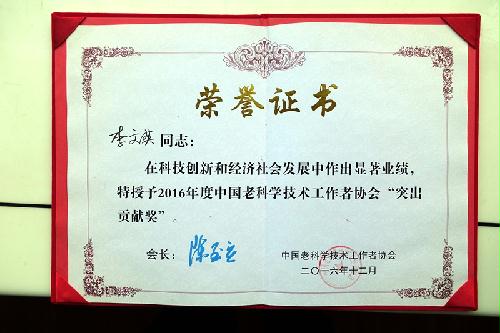 荣誉证书
李文祺 同志：
在科技创新和经济社会发展中作出显著业绩，
特授予2016年度中国老科学技术工作者协会“突出
贡献奖”。
会长：陈至立 中国老科学技术工作者协会
二〇一六年十二月